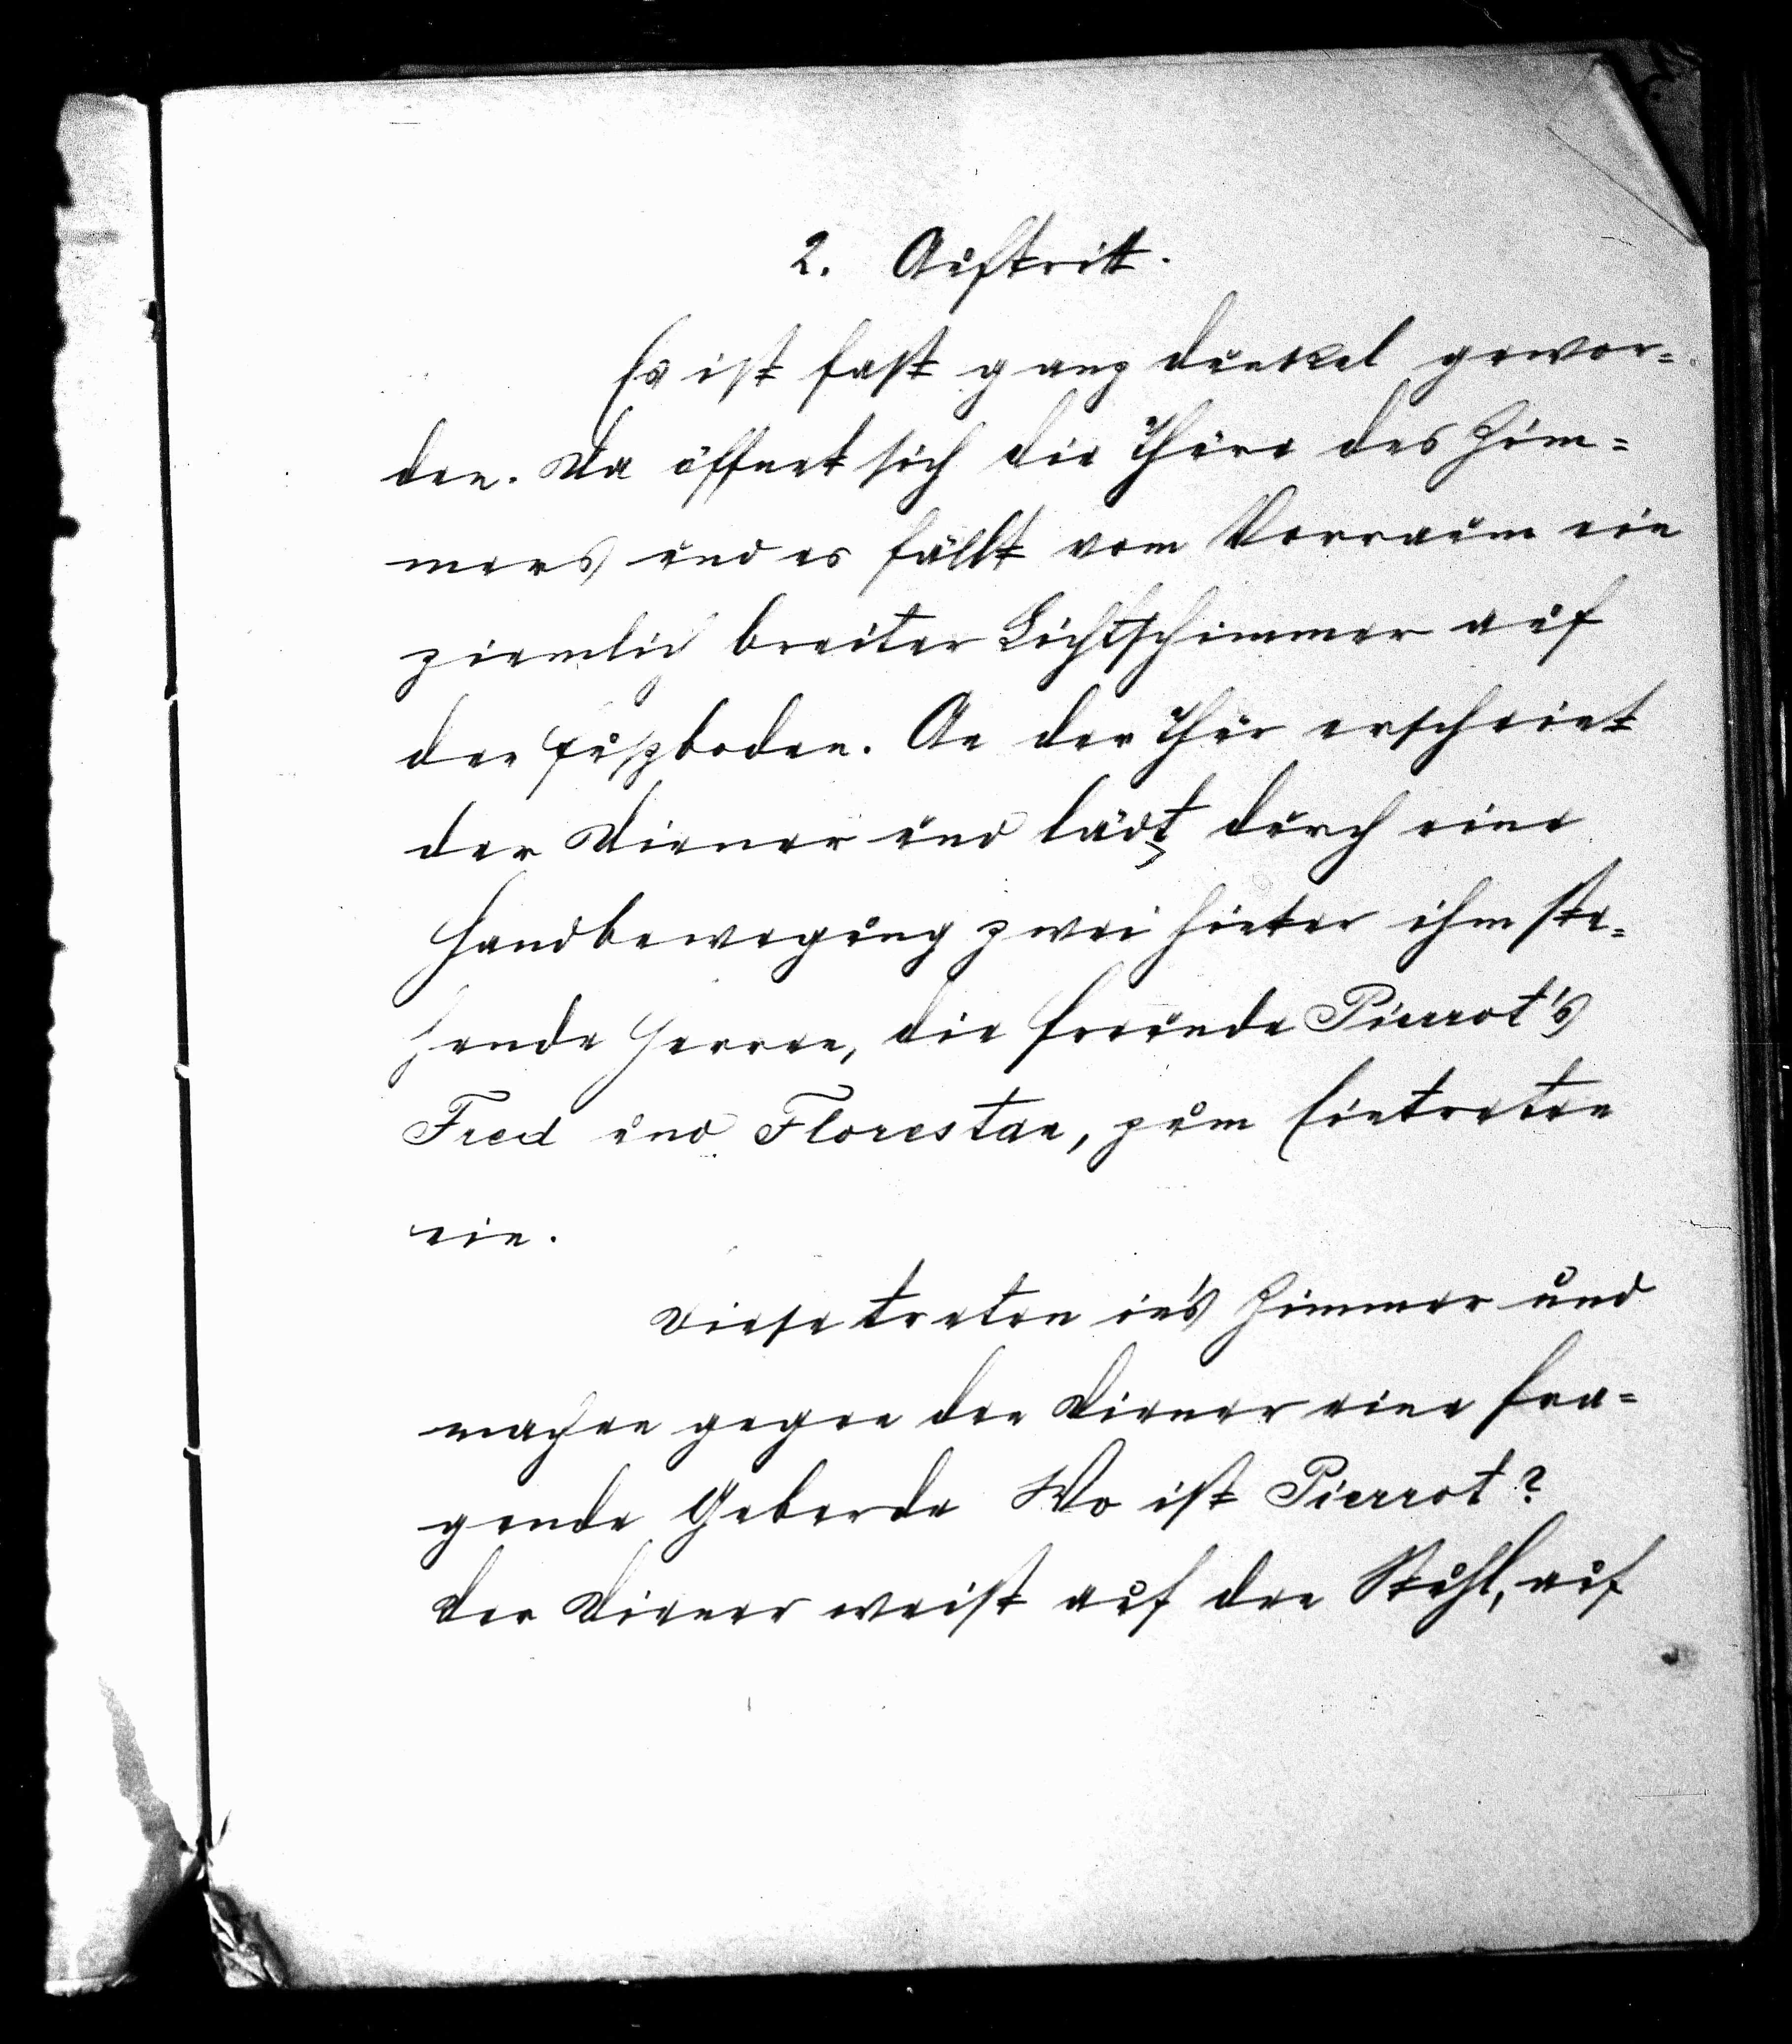 2. Auftritt.
Es ist fast ganz dunkel gewor=
den. Da öffnet sich die Thüre des Zim=
mers und es fällt vom Vorraum ein
ziemlich breiter Lichtschimmer auf
den Fußboden. An der Thür erscheint
der Diener und lädt durch eine
Handbewegung zwei hinter ihm ste=
hende Herren, die Freunde Pierrot's
Fred und Florestan, zum Eintreten
ein.
Diese treten in's Zimmer und
machen gegen den Diener eine fra=
gende Geberde Wo ist Pierrot?
Der Diener weist auf den Stuhl, auf